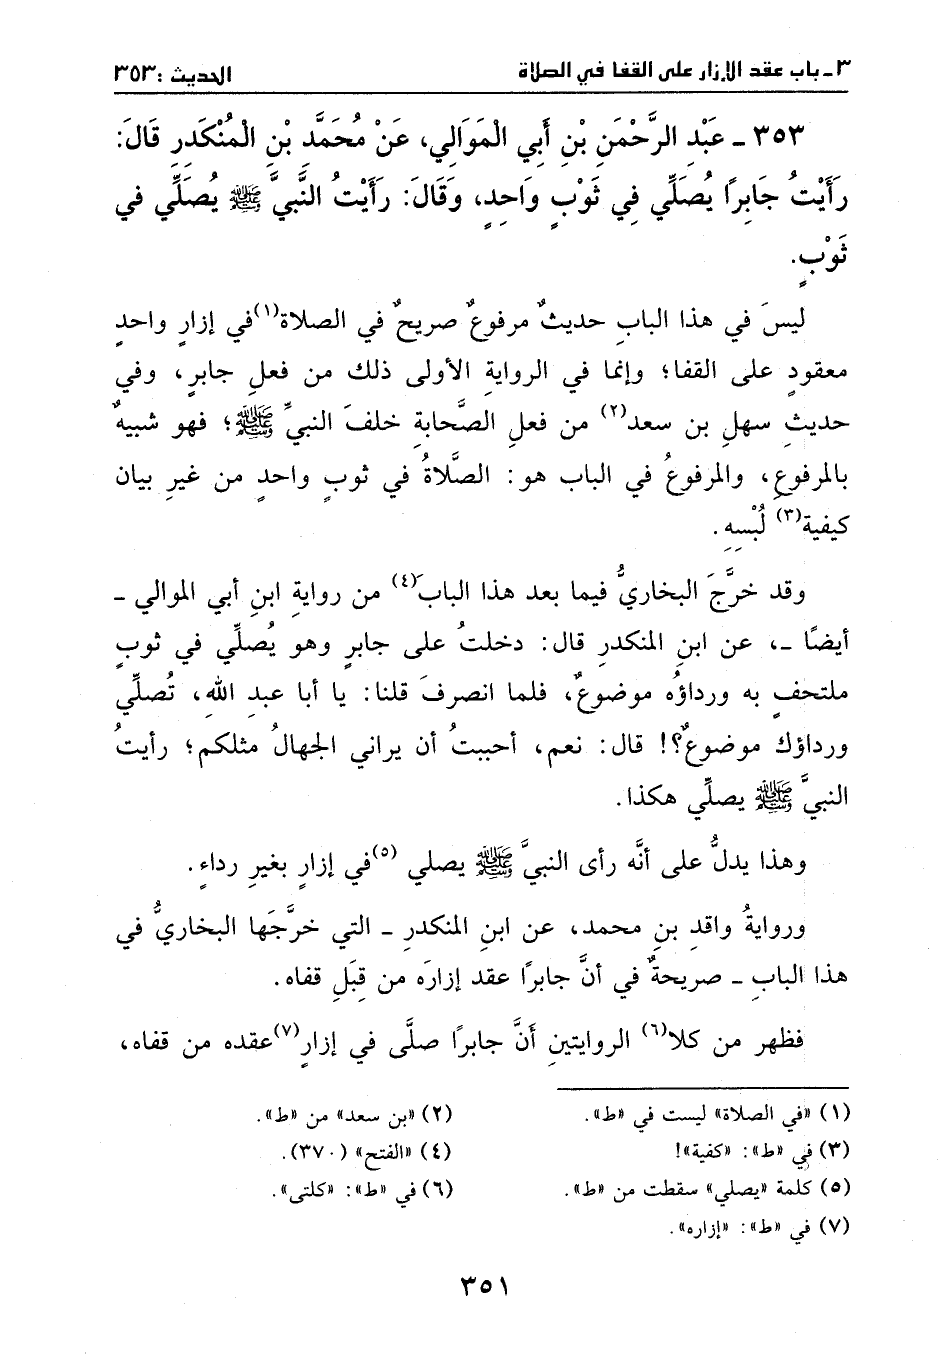 ٣ ـ باب عقد الإزار على القفا في الصلاة
الحديث : ٣٥٣
٣٥٣ ـ عَبْدِ الرَّحْمَنِ بْنِ أَبِي الْمَوَالِي، عَنْ مُحَمَّدِ بْنِ الْمُنْكَدِرِ قَالَ:
رَأَيْتُ جَابِرًا يُصَلِّي فِي ثَوْبٍ وَاحِدٍ، وَقَالَ: رَأَيْتُ النَّبِيَّ ﷺ يُصَلِّي فِي
ثَوْبٍ.
ليسَ في هذا البابِ حديثٌ مرفوعٌ صريحٌ في الصلاة(١)في إزارٍ واحدٍ
معقودٍ على القفا؛ وإنما في الروايةِ الأولى ذلك من فعلِ جابرٍ، وفي
حديثِ سهلِ بن سعد(٢) من فعلِ الصَّحابةِ خلفَ النبيِّ ﷺ؛ فهو شبيهٌ
بالمرفوعِ، والمرفوعُ في الباب هو: الصَّلاةُ في ثوبٍ واحدٍ من غيرِ بيان
كيفية(٣) لُبْسِهِ.
وقد خرَّجَ البخاريُّ فيما بعد هذا البابَ(٤) من روايةِ ابنِ أبي الموالي ـ
أيضًا ـ، عن ابنِ المنكدرِ قال: دخلتُ على جابرٍ وهو يُصلِّي في ثوبٍ
ملتحفٍ به ورداؤُه موضوعٌ، فلما انصرفَ قلنا: يا أبا عبدِ اللهِ، تُصلِّي
ورداؤك موضوعٌ؟! قال: نعم، أحببتُ أن يراني الجهالُ مثلكم؛ رأيتُ
النبيَّ ﷺ يصلِّي هكذا.
وهذا يدلُّ على أنَّه رأى النبيَّ ﷺ يصلي (٥)في إزارٍ بغيرِ رداءٍ.
وروايةُ واقدِ بنِ محمد، عن ابنِ المنكدرِ ـ التي خرَّجَها البخاريُّ في
هذا البابِ ـ صريحةٌ في أنَّ جابرًا عقد إزارَه من قِبَلِ قفاه.
فظهر من كلا(٦) الروايتينِ أنَّ جابرًا صلَّى في إزارٍ(٧)عقده من قفاه،
(١) «في الصلاة» ليست في «ط».
(٢) «بن سعد» من «ط».
(٣) في «ط»: «كفية»!
(٤) «الفتح» (٣٧٠).
(٥) كلمة «يصلي» سقطت من «ط».
(٦) في «ط»: «كلتى».
(٧) في «ط»: «إزاره».
٣٥١